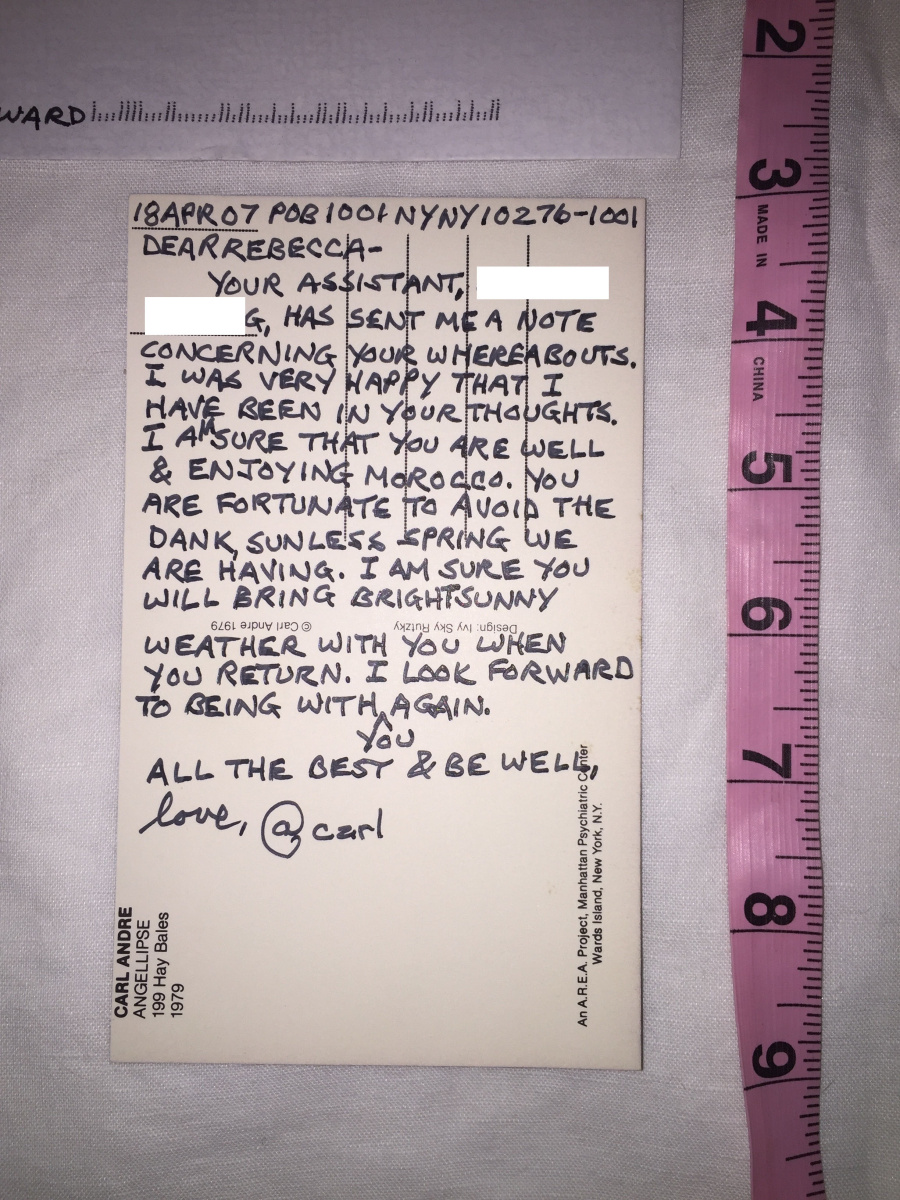 WARD
18APR07 POB 1001 NYNY10276-1001
DEAR REBECCA-
YOUR ASSISTANT,
G, HAS SENT ME A NOTE
CONCERNING YOUR WHEREABOUTS.
I WAS VERY HAPPY THAT I
HAVE BEEN IN YOUR THOUGHTS.
I AM SURE THAT YOU ARE WELL
& ENJOYING MOROCCO. YOU
ARE FORTUNATE TO AVOID THE
DANK, SUNLESS SPRING WE
ARE HAVING. I AM SURE YOU
WILL BRING BRIGHT SUNNY
Design: Ivy Sky Rutzky © Carl Andre 1979
WEATHER WITH YOU WHEN
YOU RETURN. I LOOK FORWARD
TO BEING WITH AGAIN.
YOU
ALL THE BEST & BE WELL,
love, @ carl
CARL ANDRE
ANGELLIPSE
199 Hay Bales
1979
An A.R.E.A. Project, Manhattan Psychiatric Center
Wards Island, New York, N.Y.
2
3
MADE IN
4
CHINA
5
6
7
8
9